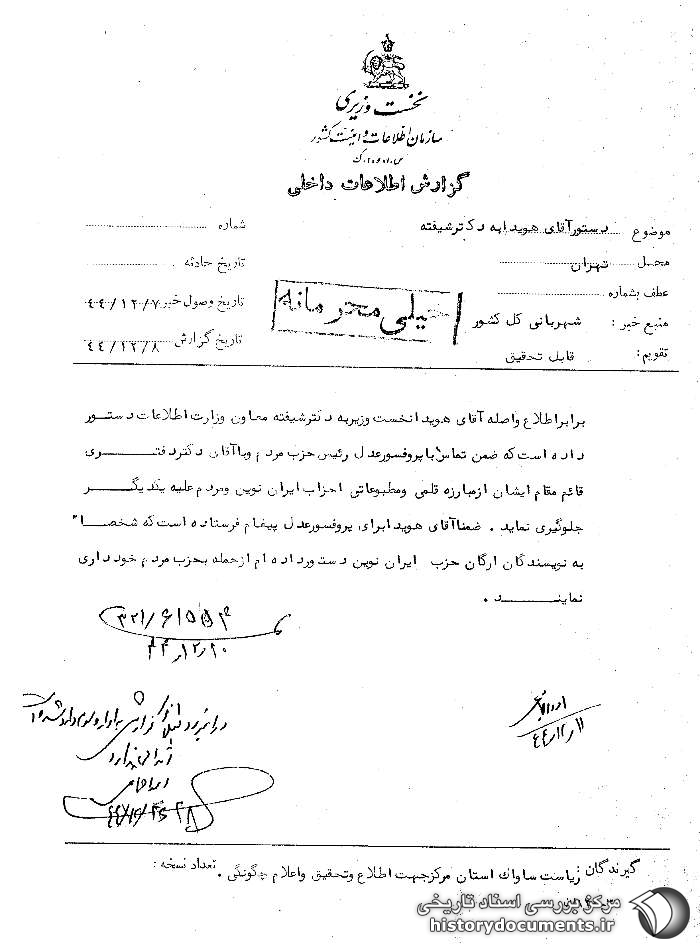 نخست وزیری
سازمان اطلاعات و امنیت کشور
س.ا.و.ا.ک
گزارش اطلاعات داخلی
موضوع دستور آقای هویدا به دکتر شیفته
شماره
محل تهران
تاریخ حادثه
عطف بشماره
تاریخ وصول خبر ۴۴/۱۲/۷
منبع خبر : شهربانی کل کشور
تاریخ گزارش ۴۴/۱۲/۸
تقویم : قابل تحقیق
خیلی محرمانه
برابر اطلاع واصله آقای هویدا نخست وزیر به دکتر شیفته معاون وزارت اطلاعات دستور
داده است که ضمن تماس با پروفسور عدل رئیس حزب مردم و یا آقای دکتر دفتری
قائم مقام ایشان از مبارزه قلمی و مطبوعاتی احزاب ایران نوین و مردم علیه یکدیگر
جلوگیری نماید . ضمنا آقای هویدا برای پروفسور عدل پیغام فرستاده است که شخصاً
به نویسندگان ارگان حزب ایران نوین دستور داده ام از حمله بحزب مردم خودداری
نمایند .
۳۲۱/۶۱۵۵۴
۴۴/۱۲/۱۰
۴۴/۱۲/۱۱
گیرندگان : ریاست ساواک استان مرکز جهت اطلاع و تحقیق و اعلام چگونگی . تعداد نسخه :
مرکز بررسی اسناد تاریخی
historydocuments.ir